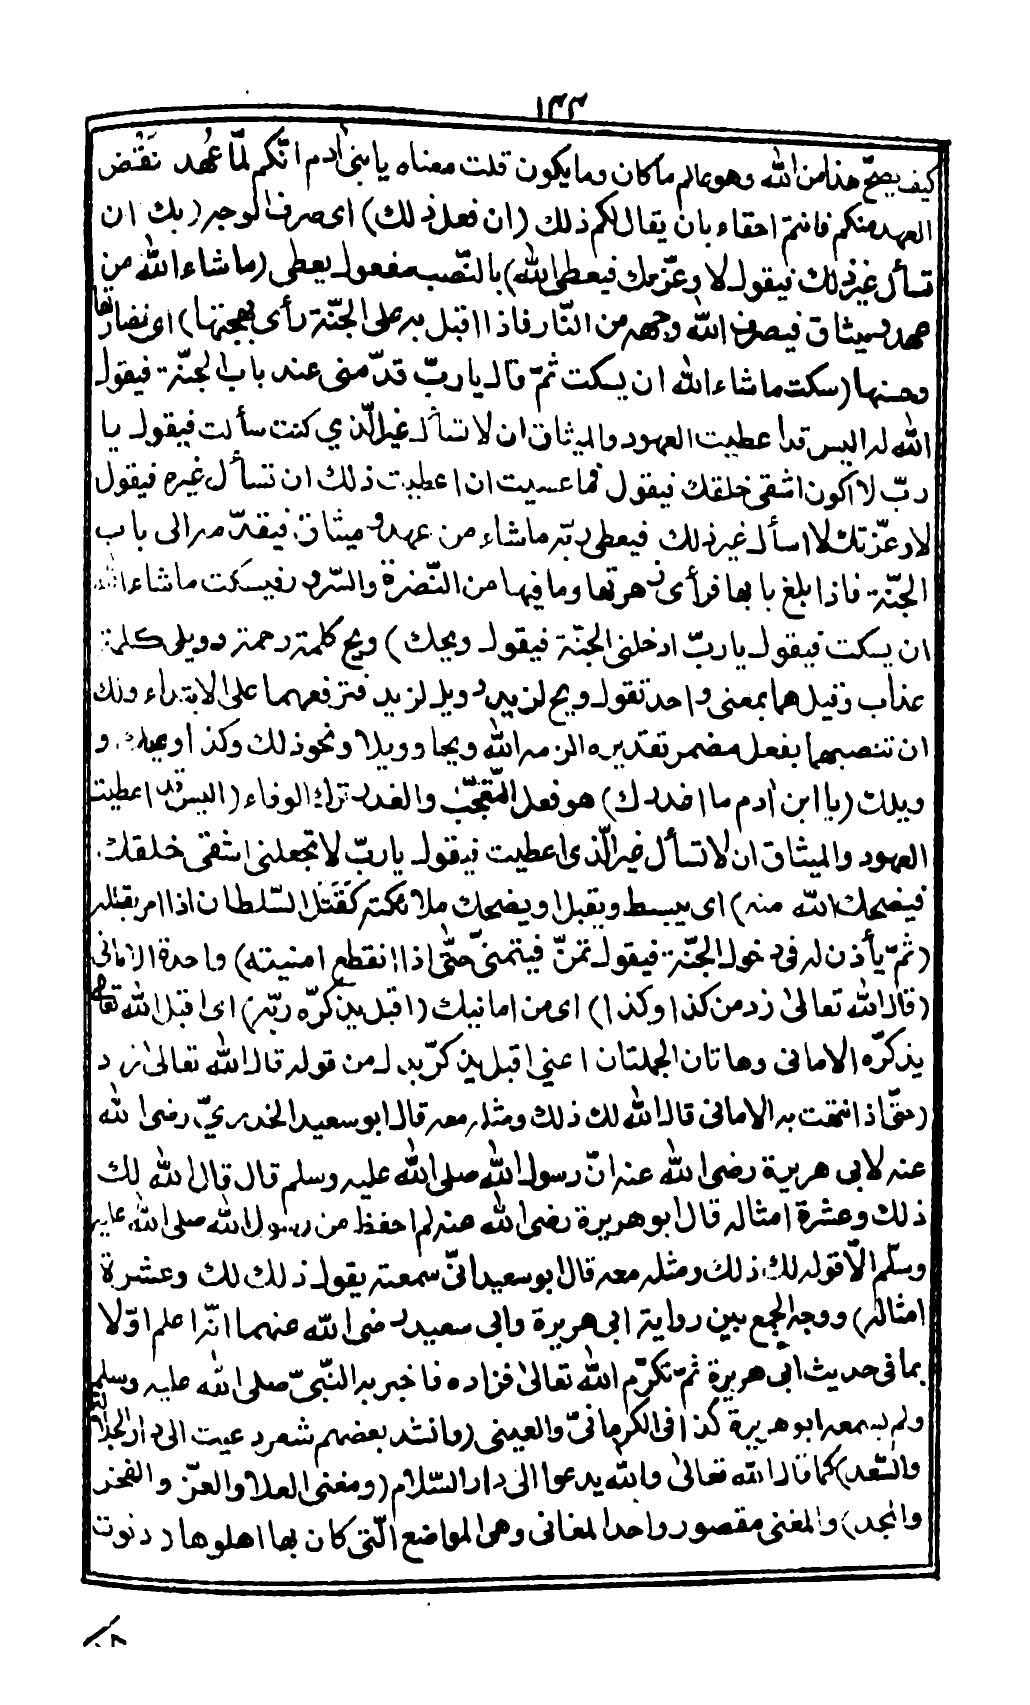 ١٤٣
كيف يصحّ هذا من الله وهو عالم ما كان وما يكون قلت معناه يا بنى آدم انّكم لمّا عُهد نَقْض
العهد منكم فانتم احقاء بان يقال لكم ذلك (ان فعل ذلك) اى صرف الوجه (بك ان
تسأل غير ذلك فيقول لا وعزّتك فيعطى الله) بالنّصب مفعول يعطى (ما شاء الله من
عهد وميثاق فيصرف الله وجهه من النّار فاذا اقبل به على الجنّة رأى بهجتها) اى نضارتها
وحسنها (سكت ما شاء الله ان يسكت ثمّ قال يا ربّ قدّمنى عند باب الجنّة فيقول
الله له اليس قد اعطيت العهود والميثاق ان لا تسأل غير الّذي كنت سألت فيقول يا
ربّ لا اكون اشقى خلقك فيقول فما عسيت ان اعطيت ذلك ان تسأل غيره فيقول
لا وعزّتك لا اسأل غير ذلك فيعطى ربّه ما شاء من عهد وميثاق فيقدّمه الى باب
الجنّة فاذا بلغ بابها فرأى زهرتها وما فيها من النّضرة والسّرور فيسكت ما شاء الله
ان يسكت فيقول يا ربّ ادخلنى الجنّة فيقول ويحك) ويح كلمة رحمة وويل كلمة
عذاب وقيل هما بمعنى واحد تقول ويح لزيد وويل لزيد فترفعهما على الابتداء ولك
ان تنصبهما بفعل مضمر تقديره الزمه الله ويحا وويلا ونحو ذلك وكذا ويحك و
ويلك (يا ابن آدم ما اغدرك) هو فعل التّعجّب والغدر ترك الوفاء (اليس قد اعطيت
العهود والميثاق ان لا تسأل غير الّذى اعطيت فيقول يا ربّ لا تجعلنى اشقى خلقك
فيضحك الله منه) اى يبسط ويقبل او يضحك ملائكته كَقَتَلَ السّلطان اذا امر بقتله
(ثمّ يأذن له فى دخول الجنّة فيقول تمنّ فيتمنّى حتّى اذا انقطع امنيته) واحدة الامانى
(قال الله تعالىٰ زد من كذا وكذا) اى من امانيك (اقبل يذكّره ربّه) اى اقبل الله تعالى
يذكّره الامانى وهاتان الجملتان اعنى اقبل يذكّر بدل من قوله قال الله تعالىٰ زد
(حتّى اذا انتهت به الامانى قال الله لك ذلك ومثله معه قال ابو سعيد الخدريّ رضى الله
عنه لابى هريرة رضى الله عنه انّ رسول الله صلى الله عليه وسلم قال قال الله لك
ذلك وعشرة امثاله قال ابو هريرة رضى الله عنه لم احفظ من رسول الله صلى الله عليه
وسلّم الّا قوله لك ذلك ومثله معه قال ابو سعيد انّى سمعته يقول ذلك لك وعشرة
امثاله) ووجه الجمع بين رواية ابى هريرة وابى سعيد رضى الله عنهما انّه اعلم اوّلا
بما فى حديث ابى هريرة ثمّ تكرّم الله تعالىٰ فزاده فاخبر به النّبىّ صلى الله عليه وسلم
ولم يسمعه ابو هريرة كذا فى الكرمانىّ والعينى (وانشد بعضهم شعر دعيت الى دار الجلالة
والسّعد) كما قال الله تعالىٰ والله يدعوا الى دار السّلام (ومغنى العلا والعزّ والفخر
والمجد) والمغنى مقصور واحد المغانى وهى المواضع الّتى كان بها اهلوها دنوت